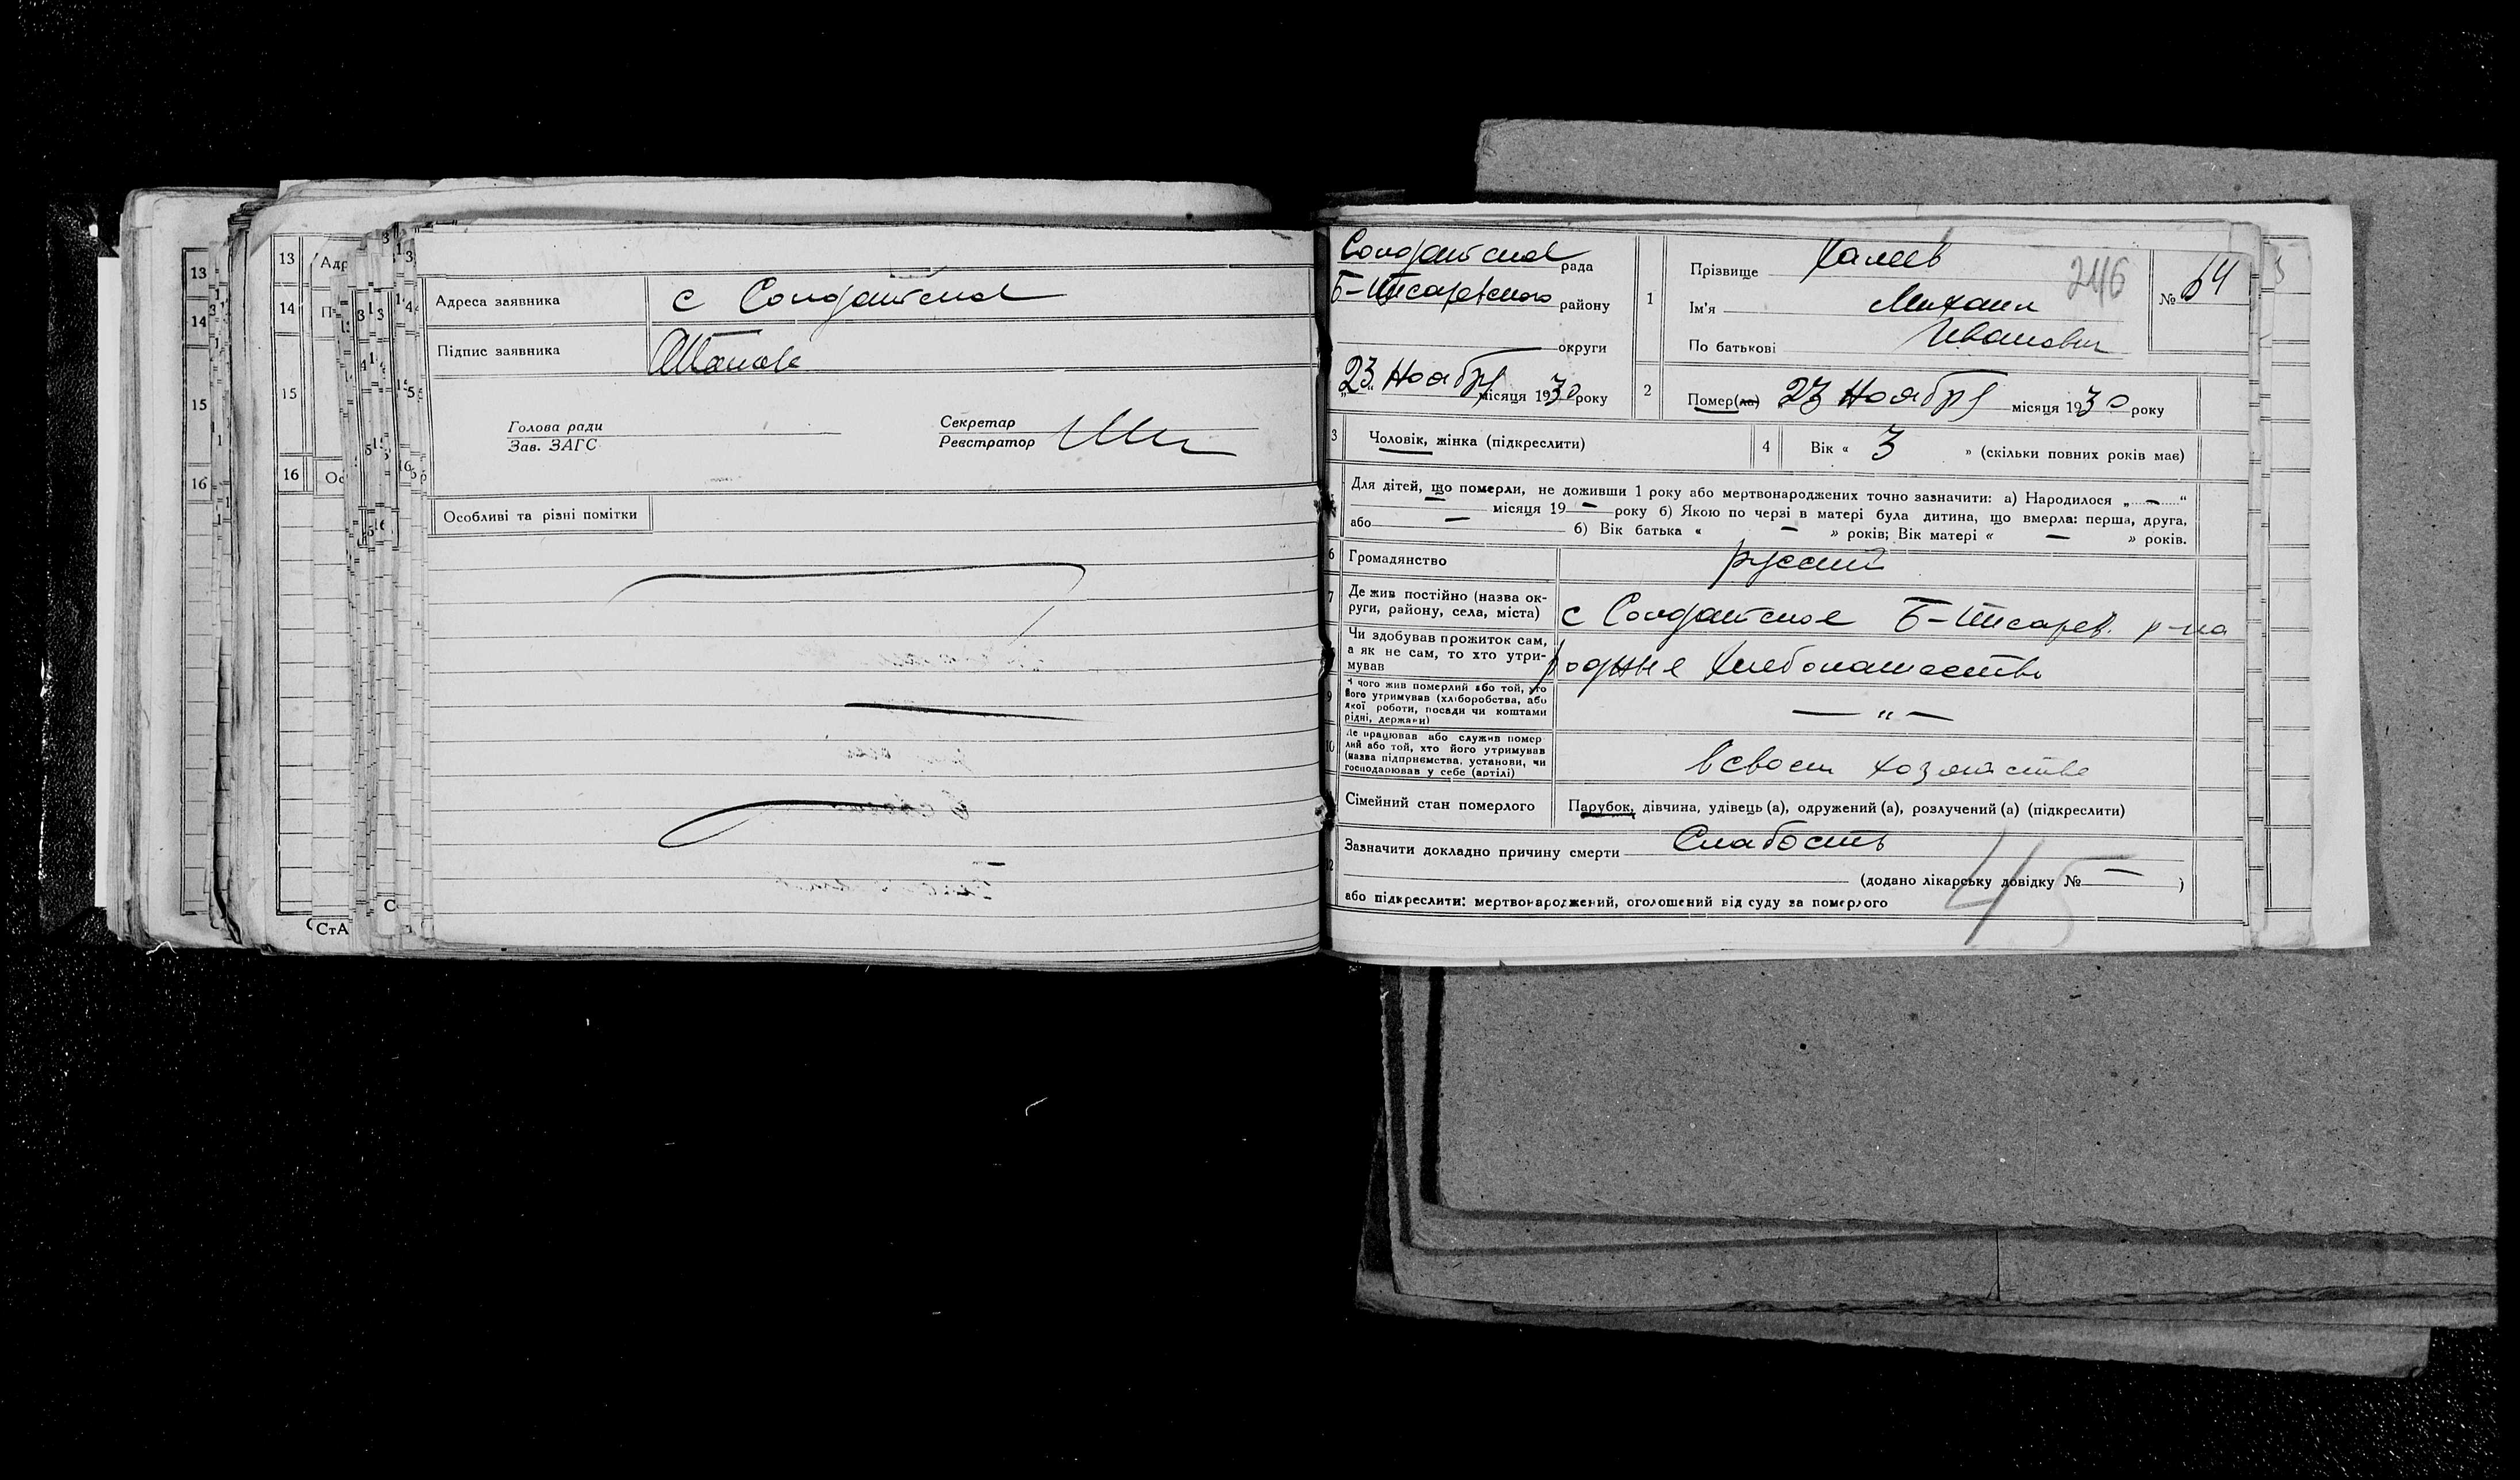 13
14
15
16
13
14
15
16
Адреса заявника с Солдатское
Підпис заявника
Голова ради
Зав. ЗАГС
Секретар
Реєстратор
Особливі та різні помітки
Солдатское рада
Б-Писаревского району
округи
23 Ноября місяця 1930 року
1
Прізвище Халеев
Ім'я Михаил
По батькові Иванович
№ 64
2
Помер(ла) 23 Ноября місяця 1930 року
3 Чоловік, жінка (підкреслити)
4 Вік « 3 » (скільки повних років має)
Для дітей, що померли, не доживши 1 року або мертвонароджених точно зазначити: а) Народилося „ — “
— місяця 19 — року б) Якою по черзі в матері була дитина, що вмерла: перша, друга,
або — б) Вік батька « — » років; Вік матері « — » років.
6 Громадянство русский
7 Де жив постійно (назва ок-
руги, району, села, міста) с Солдатское Б-Писарев. р-на
Чи здобував прожиток сам,
а як не сам, то хто утри-
мував родние хлебопашество
9 З чого жив померлий або той, хто
його утримував (хліборобства, або
якої роботи, посади чи коштами
рідні, держави) — „ —
10 Де працював або служив помер-
лий або той, хто його утримував
(назва підприємства, установи, чи
господарював у себе (артілі) в своем хозяйстве
Сімейний стан померлого Парубок, дівчина, удівець (а), одружений (а), розлучений (а) (підкреслити)
12 Зазначити докладно причину смерти Слабость
(додано лікарську довідку № — )
або підкреслити: мертвонароджений, оголошений від суду за померлого
45